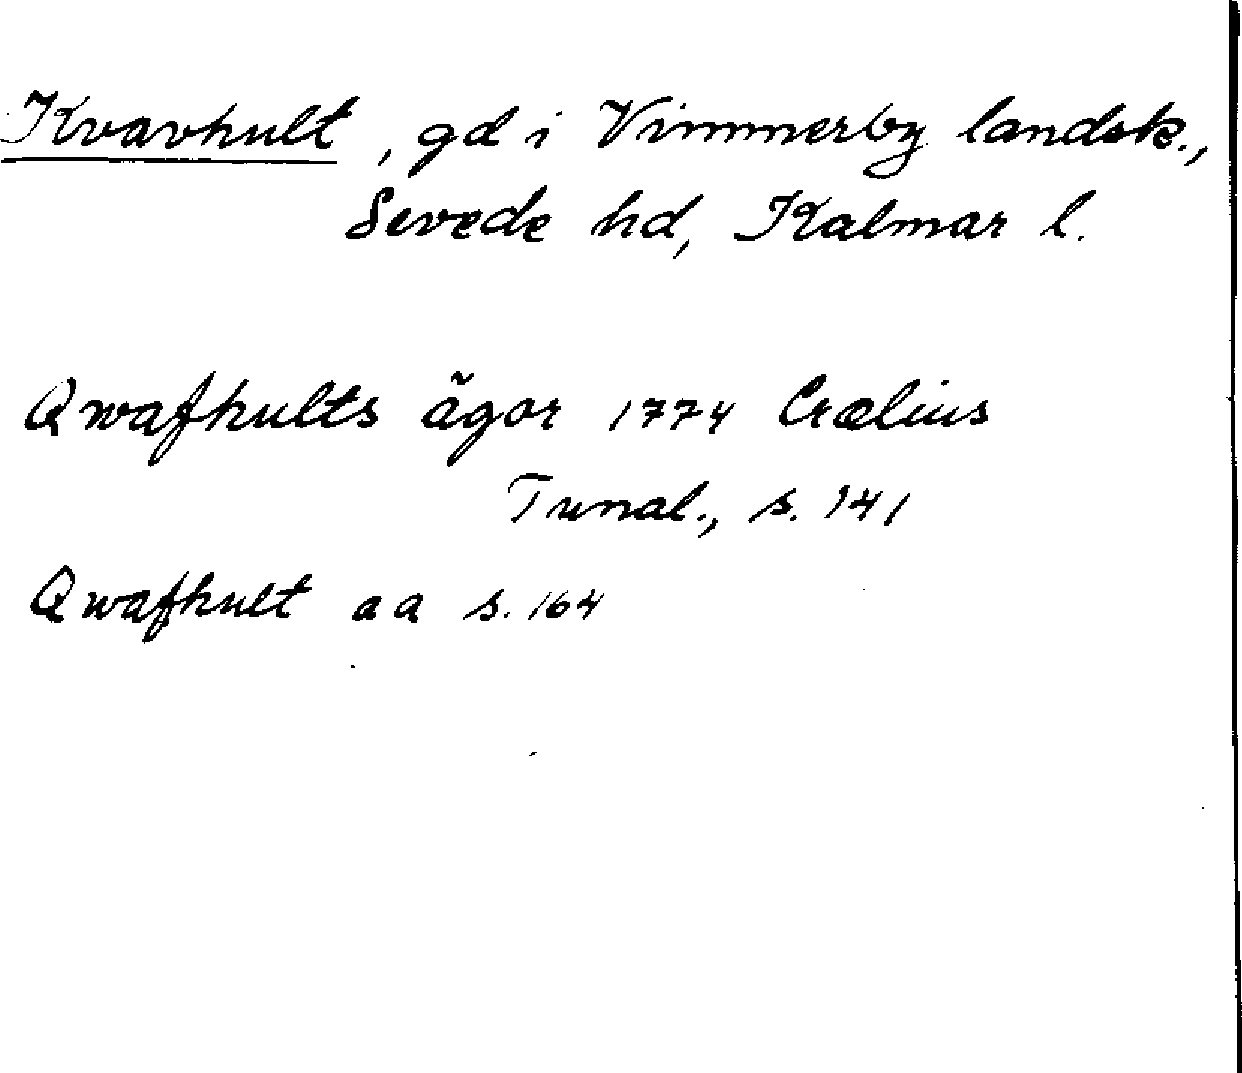 Kvavhult, gd i Vimmerby landsk.,
Sevede hd, Kalmar l.
Qwafhults ägor 1774 Crælius
Tunal., s. 141
Qwafhult aa s. 164